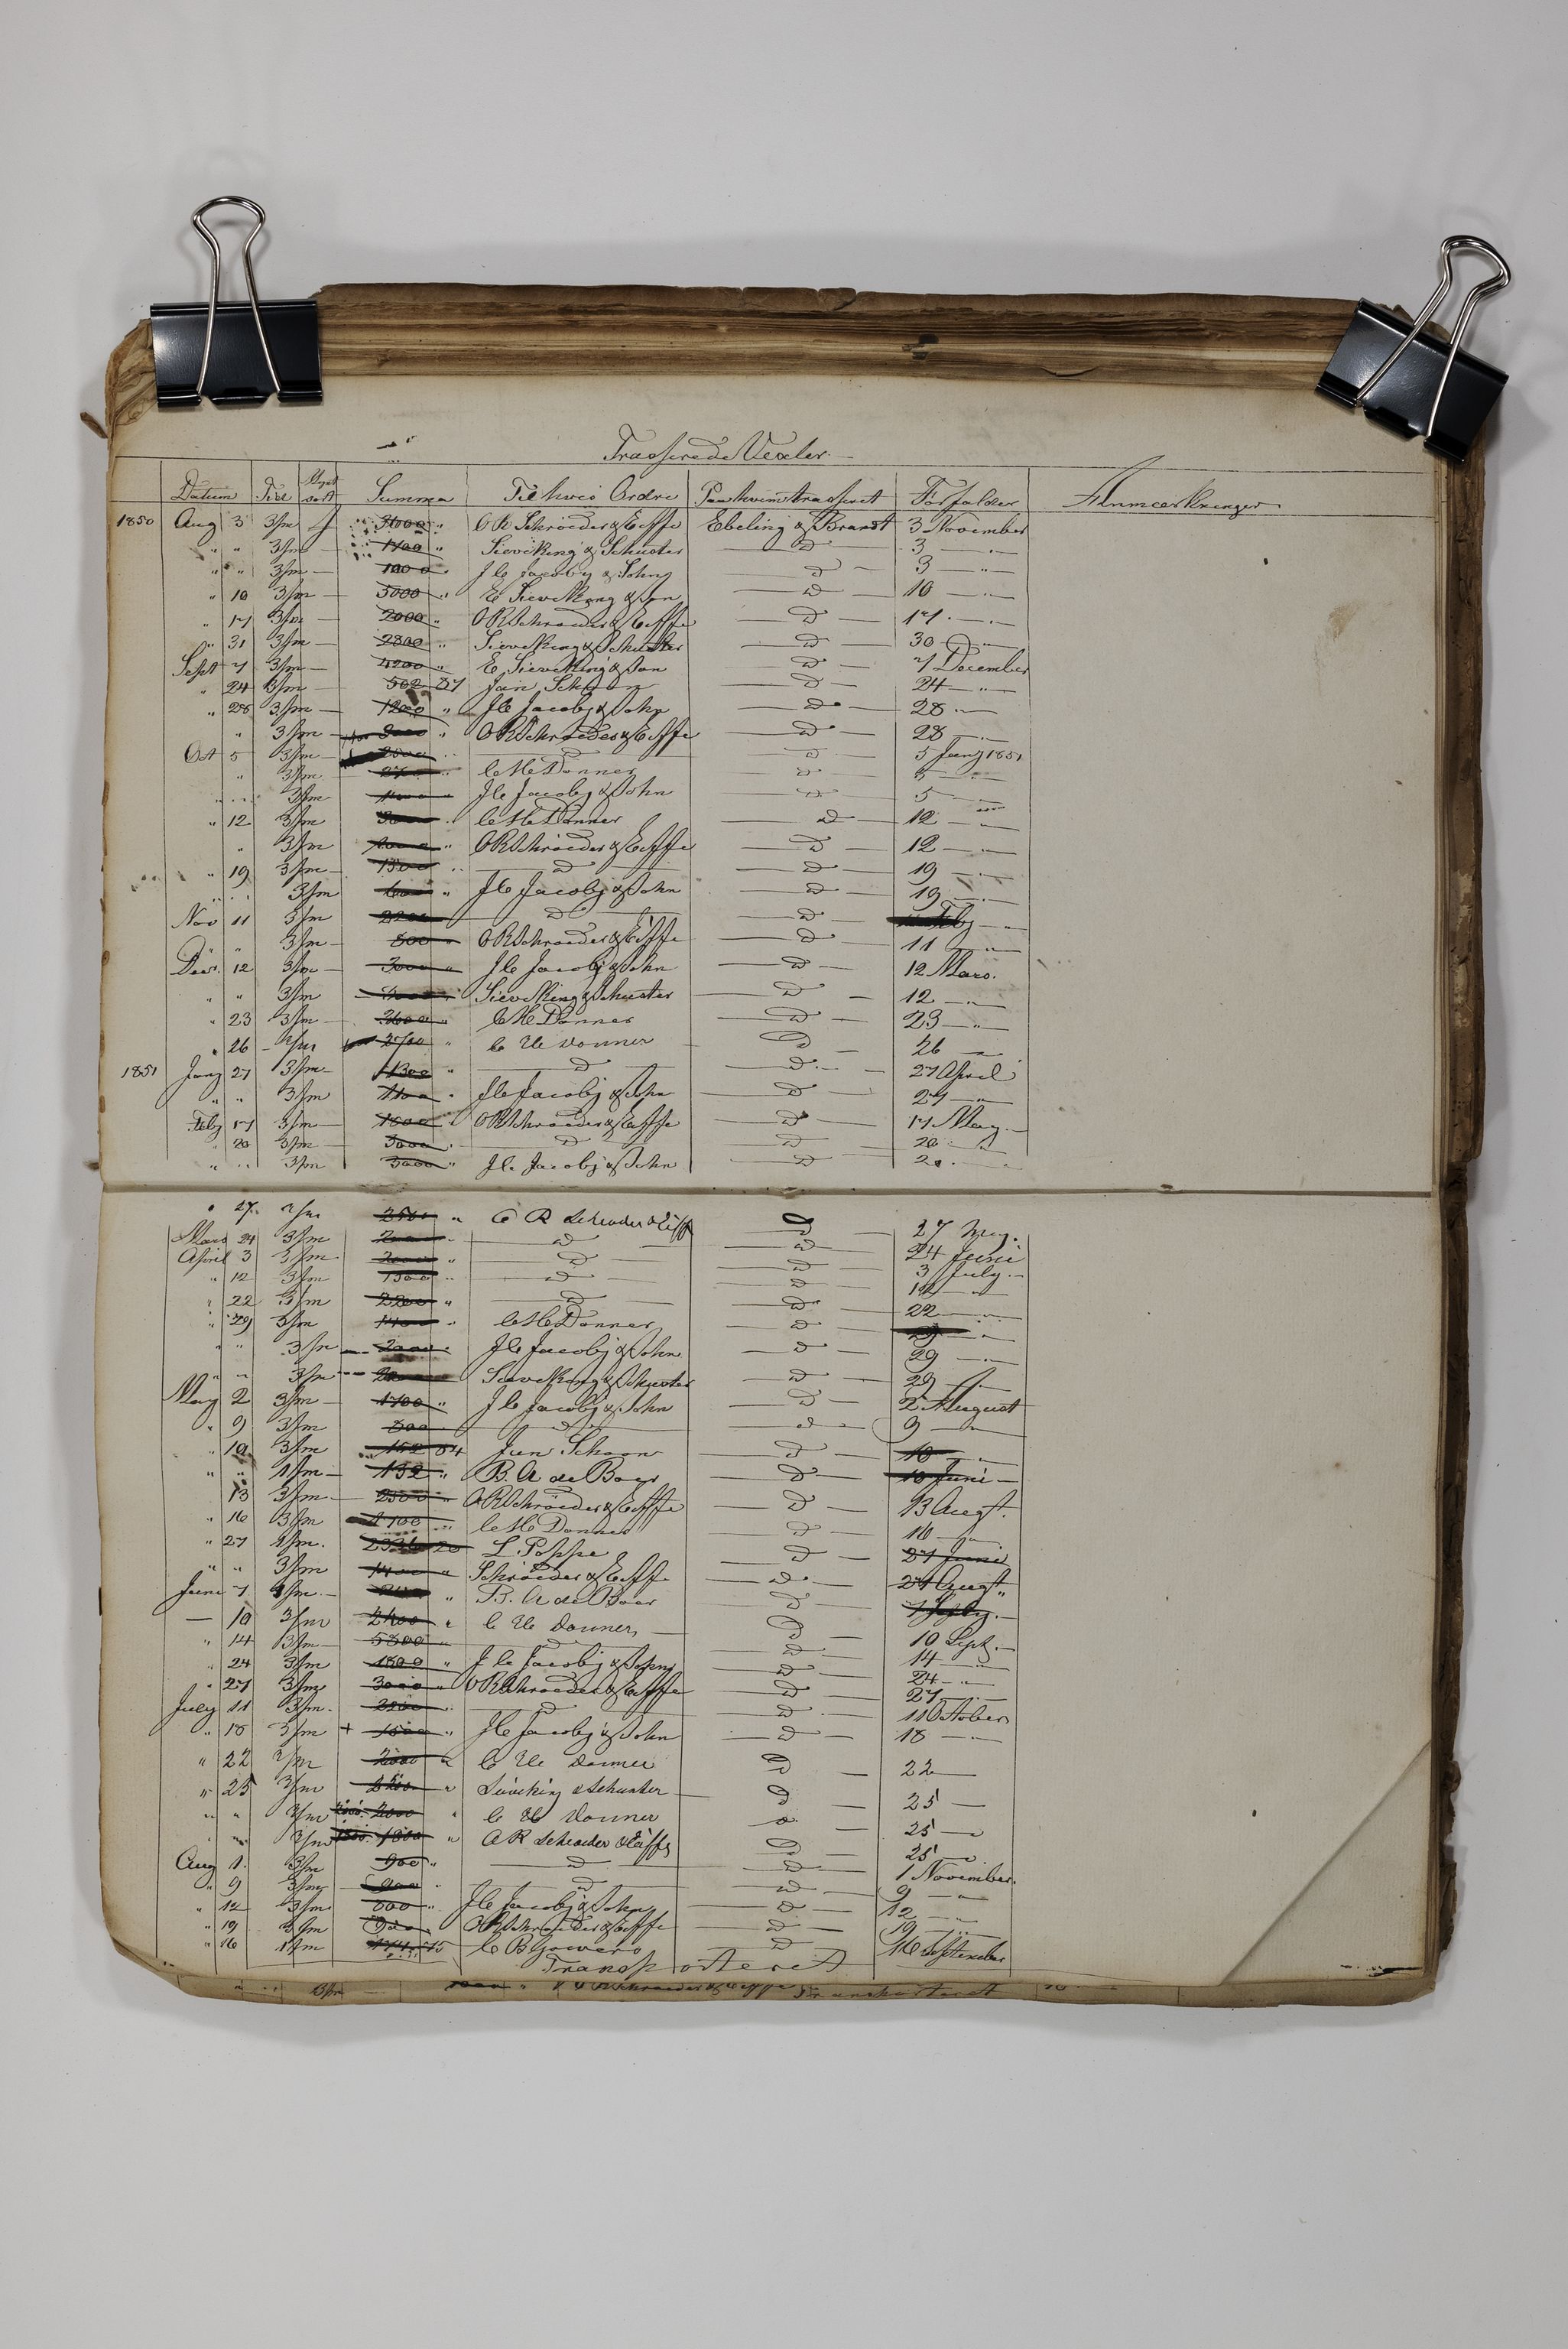 Trasserede Vexler
Datum Tid Mynt sort Summa Til hvis Ordre Paa hvem trasseret Forfalder Anmærkninger
1850 Aug 3 3/m 3000 " O R Schröeder & Eiffe Ebeling & Brandt 3 November
" " 3/m 1700 " Sieveking & Schuster d 3 "
" " 3/m 1000 J C Jacobj & Sohn d 3 "
" 10 3/m 5000 " E Sieveking & Son d 10 "
" 17 3/m 2000 " O R Schroeder & Eiffe d 17 "
" 31 3/m 2800 " Sieveking & Schuster d 30 "
Sept 7 3/m 4200 " E. Sieveking & Son d 7 December
" 24 3/m 502 Jan Schoon d 24 "
" 28 3/m 1200 " J C Jacobj & Sohn d 28 "
" 3/m " O R Schroeder & Eiffe d 28 "
Oct 5 3/m d d 5 Jany 1851
" 3/m " C H Donner d 5 "
" " 3/m J C Jacobj & Sohn d 5
" 12 3/m C H Donner d 12 "
" 3/m " O R Schröeder & Eiffe d 12 "
" 19 3/m 1500 d d 19 "
" " 3/m 600 " J C Jacobj & Sohn d 19 "
Nov 11 3/m 2200 d d Feby "
" 3/m 800 O R Schroeder & Eiffe d 11 "
Decr. 12 3/m 3000 " J C Jacobj & Sohn d 12 Mars.
" " 3/m Sieveking & Schuster d 12 "
" 23 3/m 3600 C H Donner d 23 "
" 26 3/m 2700 " C H Donner d 26 "
1851 Jany 27 3/m 1300 " d d 27 April
" " 3/m 1100 " J C Jacobj & Sohn d 27 "
Feby 17 3/m 1600 " O R Schröeder & Eiffe d 17 May
20 3/m 3000 d d 20 "
" " 3/m 3000 " J C Jacobj & Sohn d 20 "
" 27 3/m 2500 " O R Schroder & Eiffe d 27 May.
Mars 24 3/m d d 24 Juni
April 3 3/m 2000 " d d 3 July
" 12 3/m 1500 " d d 12 "
" 22 3/m 2200 " d d 22 "
" 29 3/m 1400 " C H Donner d 29 "
" " 3/m 2000 J C Jacobj & Sohn d 29 "
" " 3/m Sieveking & Schuster d 29 "
May 2 3/m 1700 " J C Jacobj & Sohn d 2 August
" 9 3/m 800 d d 9
" 10 3/m 152 84 Jan Schoon d 10
" " 1/m 132 " B. A de Boer d 10 Juni
13 3/m 2500 " O R Schröeder & Eiffe d 13 Augt.
" 16 3/m 1100 " C H Donner d 16 "
" 27 1/m. 20 L. Poppe d 27 Juni
" " 3/m 1400 " Schröeder & Eiffe d 27 Augt "
Juni 7 1/m " B. A de Boer d 7 July.
10 3/m 2400 " C H Donner, d 10 Sept.
" 14 3/m 5800 " d d 14 "
" 24 3/m 1800 " J C Jacobj & Sohn d 24 "
" 27 3/m 3000 " O R Schroeder & Eiffe d 27
July 11 3/m 2200 " d d 11 October
" 18 3/m + 1500 " J C Jacobj & Sohn d 18
" 22 3/m 2000 " C H Donner d 22
" 25 3/m " Sieveking & Schuster d 25
" " 3/m 2000 " C H Donner d 25
" " 3/m 1800 " O R Schroeder & Eiffe d 25
Aug 1. 3/m 900 " d d 1 November.
" 9 3/m 900 " d d 9 "
" 12 3/m 800 " J C Jacobj & Sohn d 12 "
" 19 3/m O R Schroeder & Eiffe d 19 "
" 16 1/m 15 C B d 16 September
Transporteret
3/m " O R Schroeder & Eiffe Transporteret